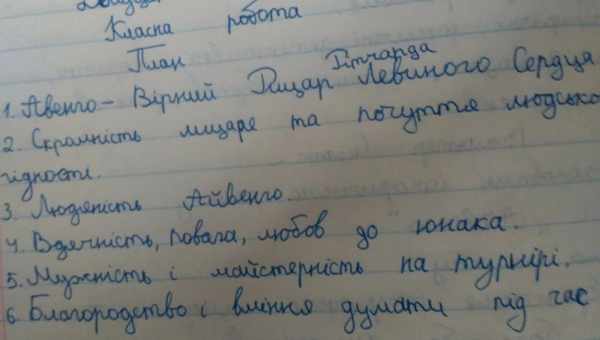 Класна робота
План
Річарда
1. Авенго - Вірний Рицар Левиного Серця
2. Скромність лицаря та почуття людсько
гідности.
3. Людяність Айвенго.
4. Вдячність, повага, любов до юнака.
5. Мужність і майстерність на турнірі.
6. Благородство і вміння думати під час